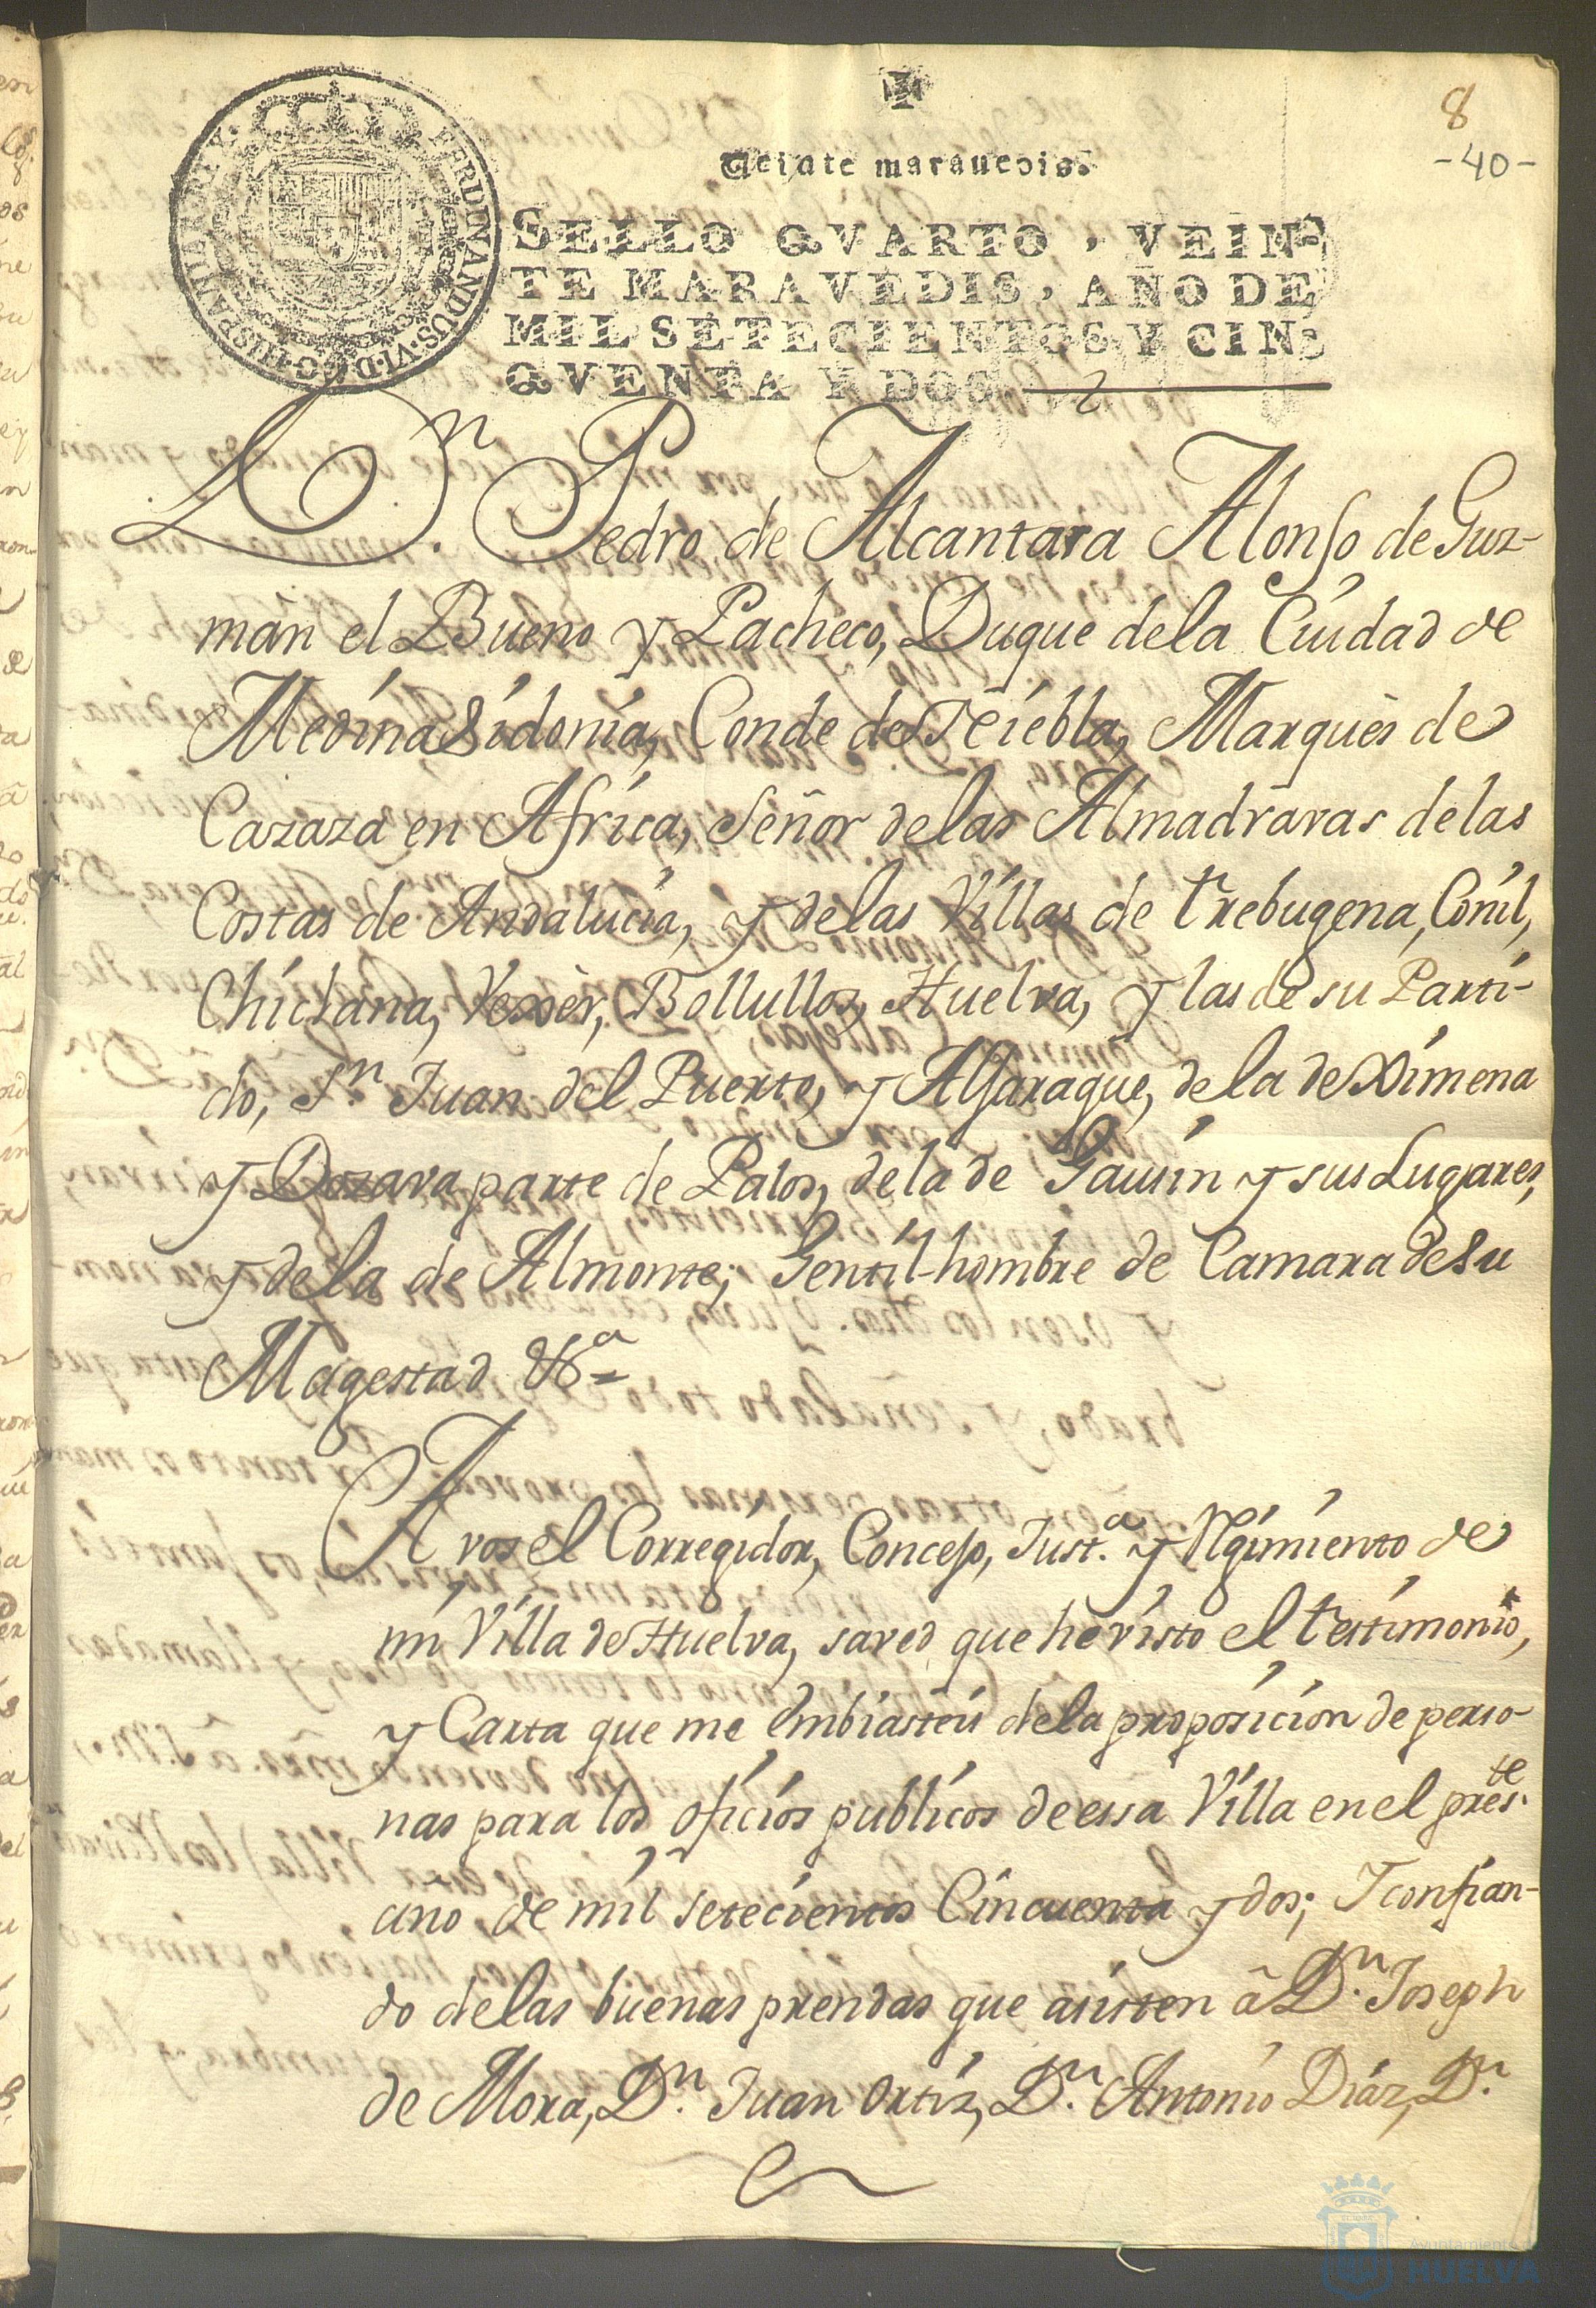 8
-40-
Veinte marauedis.
SELLO QVARTO, VEIN-
TE MARAVEDIS, AÑO DE
MIL SETECIENTOS Y CIN-
QVENTA Y DOS.
FERDINANDUS·VI·D·G·HISPANIAR·REX·
Dn. Pedro de Alcantara Alonso de Guz-
mán el Bueno y Pacheco, Duque dela Ciudad de
Medina Sidonia, Conde de Niebla, Marquès de
Cazaza en Africa, Señor delas Almadravas delas
Costas de Andalucia, y delas Villas de trebugena, Conil,
Chiclana, Vexèr, Bollullos, Huelva, y las de su Parti-
do, Sn. Juan del Puerto, y Aljaraque, dela de Ximena
y Dozava parte de Palos, dela de Gausin y sus Lugares,
y dela de Almonte; Gentil-hombre de Camara de Su
Magestad &a
A vos el Corregidor, Concejo, Just.a y Rgimiento de
mi Villa de Huelva, saved que he visto el testimonio,
y Carta que me embiasteis dela proposicion de perso-
nas para los oficios publicos de essa Villa en el pres.te
año de mil setecientos Cincuenta y dos; Y confian-
do delas buenas prendas que asisten â Dn. Joseph
de Mora, Dn. Juan Ortiz, Dn. Antonio Diáz, Dn.
Ayuntamiento
HUELVA